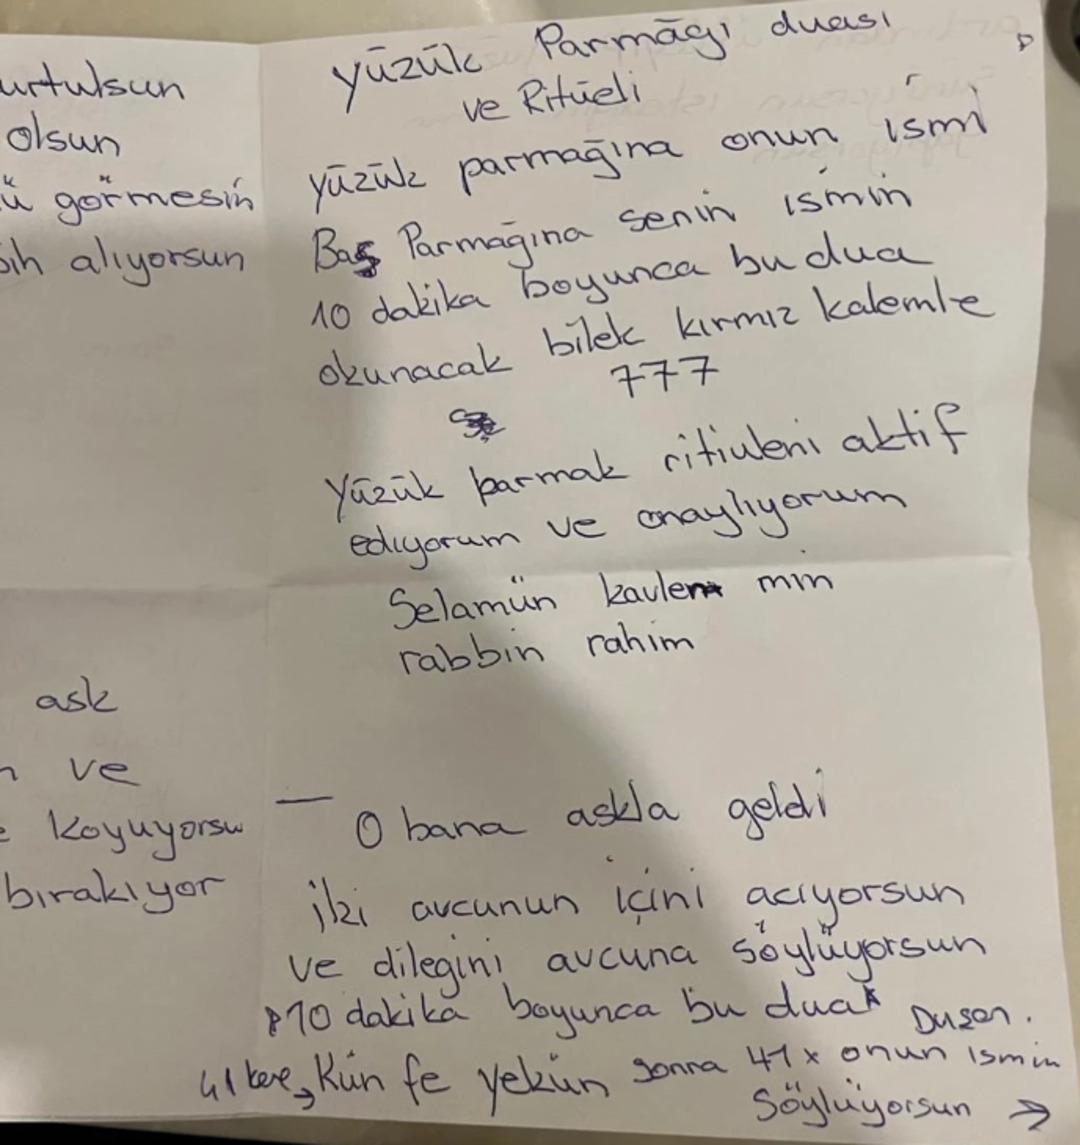 urtulsun
olsun
ü görmesin
alıyorsun
ask
ve
koyuyorsu
bırakıyor
yüzük Parmağı duası
ve Ritüeli
yüzük parmağına onun ismi
Baş Parmağına senin ismin
10 dakika boyunca bu dua
okunacak bilek kırmız kalemle
777
Yüzük parmak ritiuleni aktif
ediyorum ve onaylıyorum
Selamün kavlem min
rabbin rahim
— O bana askla geldi
iki avcunun içini acıyorsun
ve dilegini avcuna söylüyorsun
10 dakika boyunca bu dua
41 kere, Kün fe yekün sonra 41x onun ismin
Söylüyorsun →